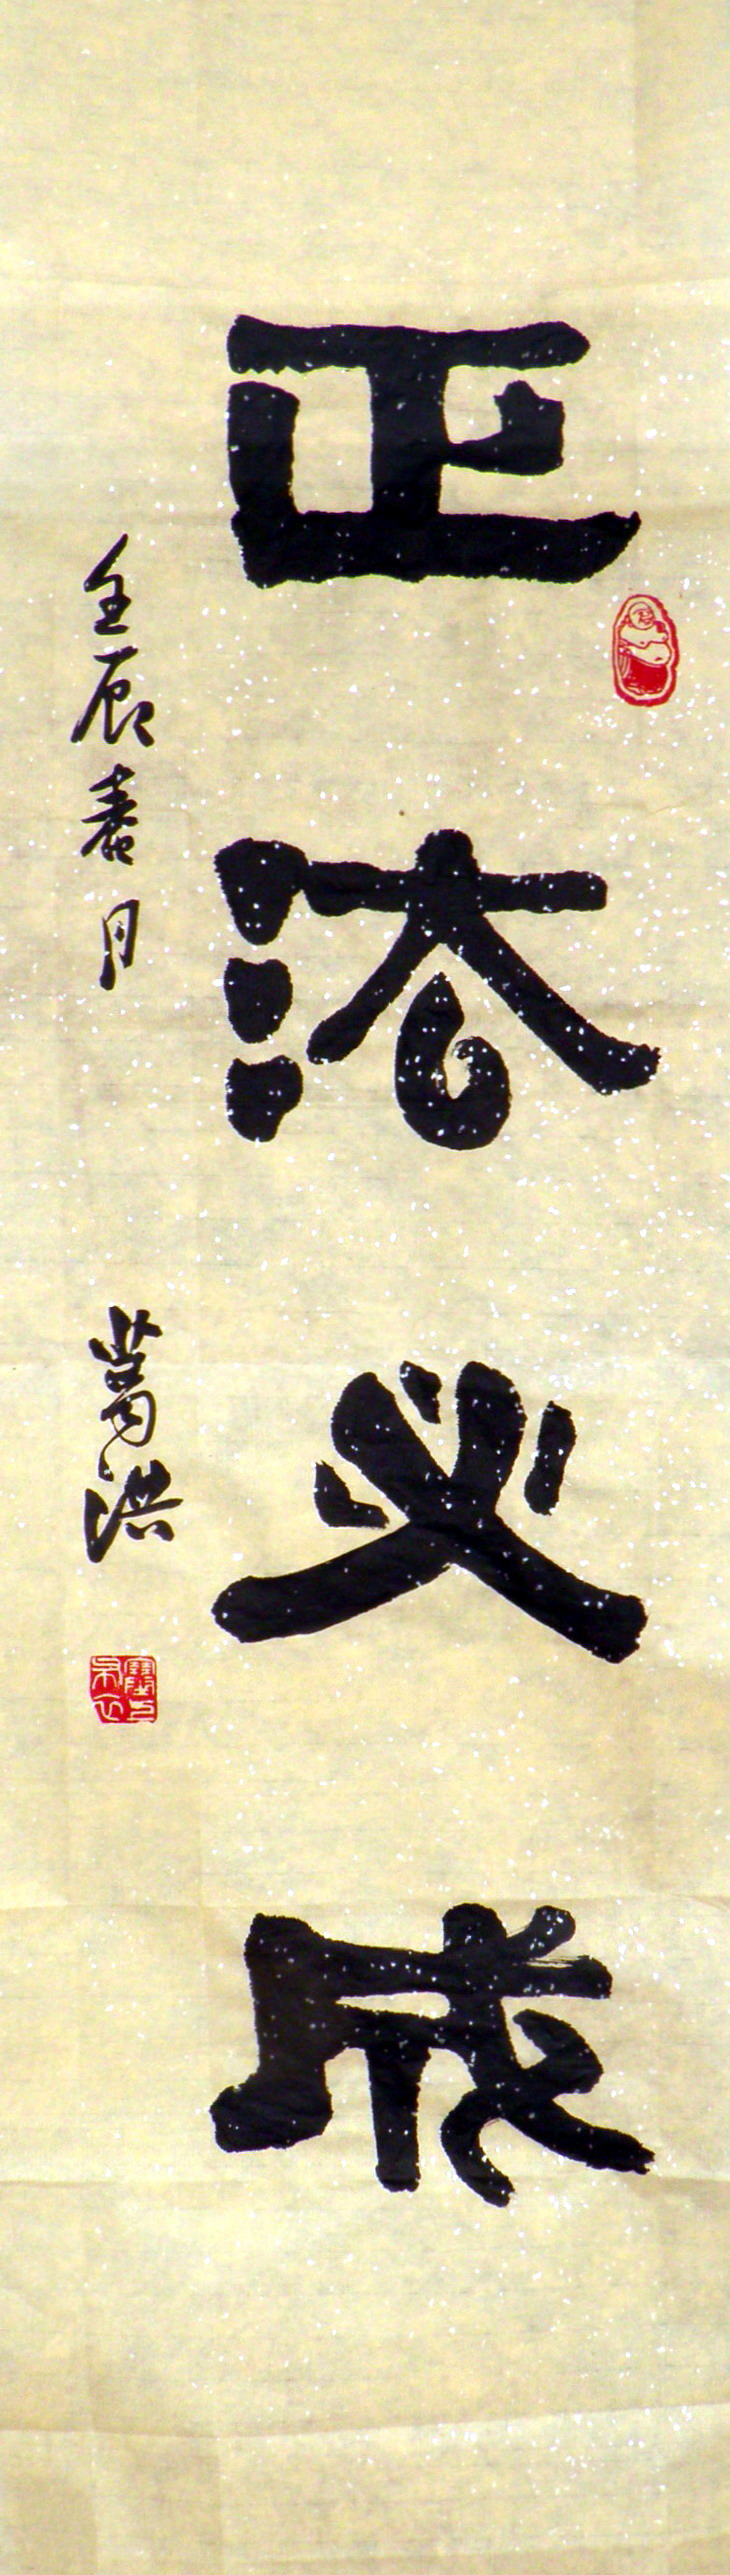 正法必成
壬辰春月
葛洪